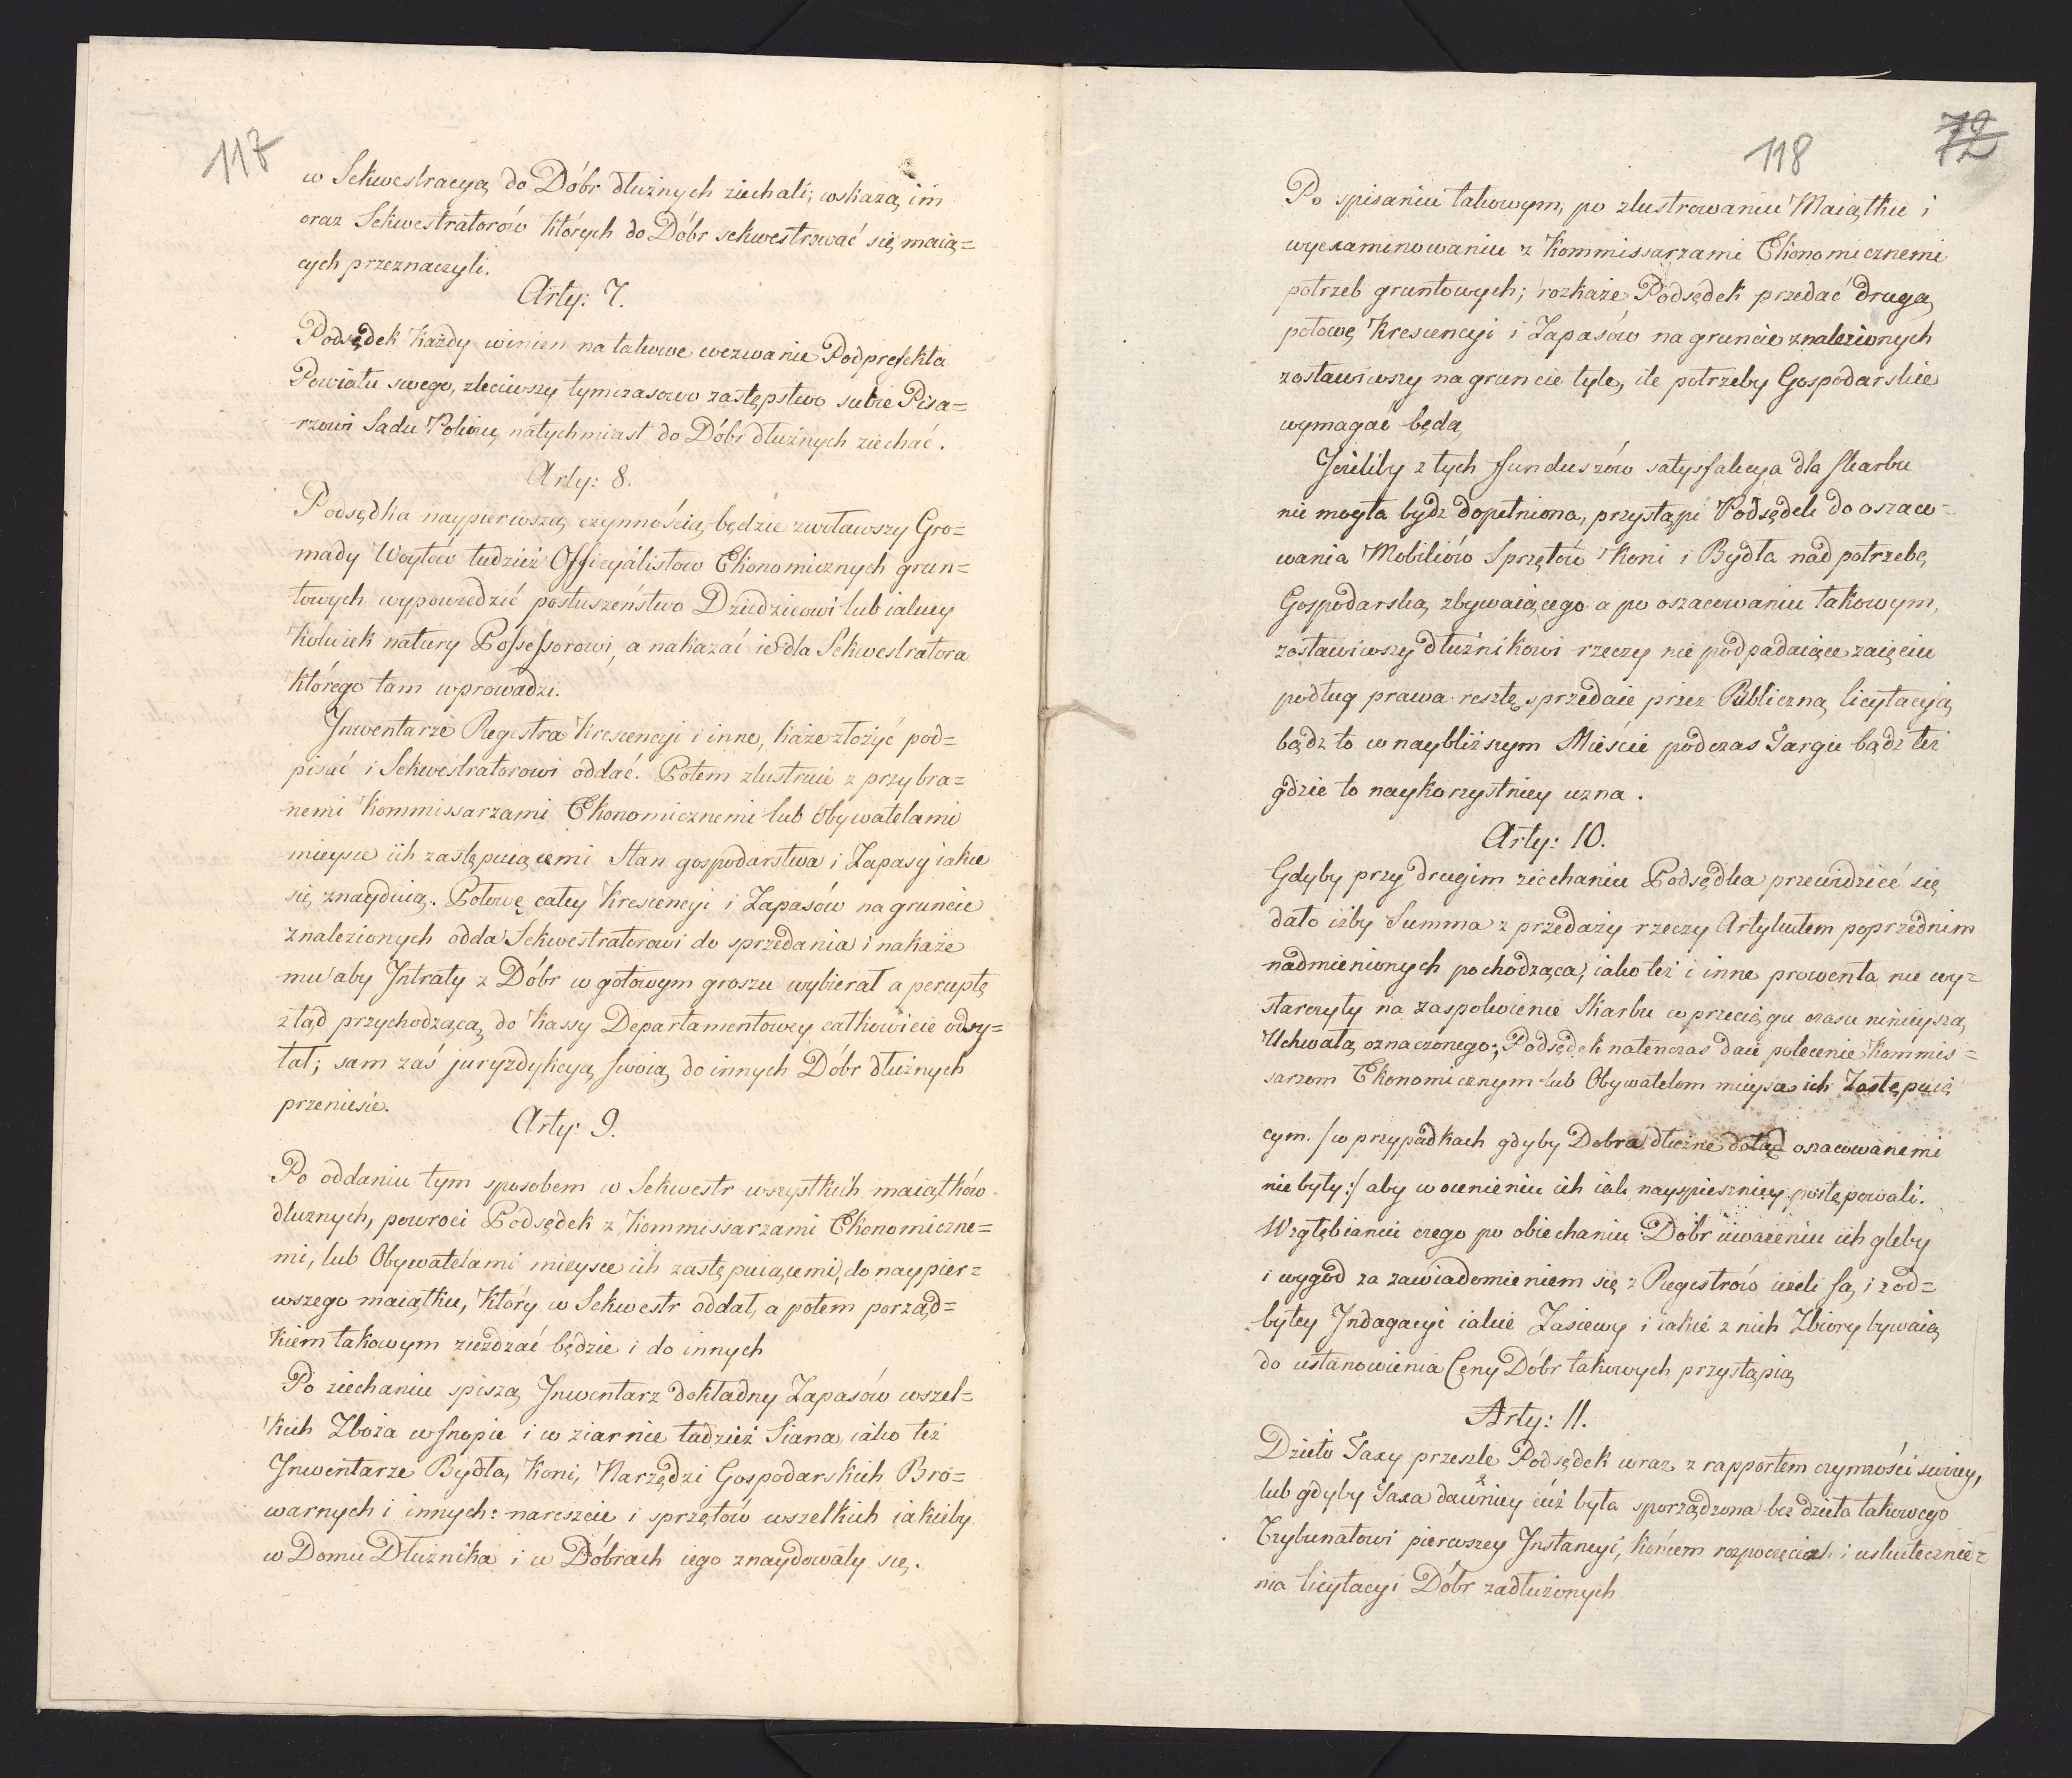 117
w Sekwestracyą do Dóbr dłużnych ziechali; wskażą im
oraz Sekwestratorów których do Dóbr sekwestrować się maią=
cych przeznaczyli.
Arty: 7.
Podsędek każdy winien na takowe wezwanie Podprefekta
Powiatu swego, zleciwszy tymczasowo zastępstwo siebie Pisa=
rzowi Sądu Pokoiu, natychmiast do Dóbr dłużnych ziechać.
Arty: 8.
Podsędka naypierwszą czynnością będzie zwoławszy Gro=
mady Woytów tudzież Officyalistow Ekonomicznych grun=
towych wypowiedzić posłuszeństwo Dziedzicowi lub iakiey
kolwiek natury Possessorowi, a nakazać ie dla Sekwestratora
którego tam wprowadzi.
Inwentarze Regestra Krescencyi i inne, każe złożyć pod=
pisać i Sekwestratorowi oddać. Potem zlustruie z przybra=
nemi Kommissarzami Ekonomicznemi lub Obywatelami
mieysce ich zastępuiącemi Stan gospodarstwa i Zapasy iakie
się znayduią. Połowę całey Krescencyi i Zapasów na gruncie
znalezionych odda Sekwestratorowi do sprzedania i nakaże
mu aby Intraty z Dóbr w gotowym groszu wybierał a perceptę
ztąd przychodzącą do Kassy Departamentowey całkowicie odsy=
łał; sam zaś juryzdykcyą swoią do innych Dóbr dłużnych
przeniesie.
Arty: 9.
Po oddaniu tym sposobem w Sekwestr wszystkich maiątków
dłużnych, powroci Podsędek z Kommissarzami Ekonomiczne=
mi, lub Obywatelami mieysce ich zastępuiącemi, do naypier=
wszego maiątku, który w Sekwestr oddał, a potem porząd=
kiem takowym zieżdżać będzie i do innych
Po ziechaniu spiszą Inwentarz dokładny Zapasów wszel=
kich Zboża w snopie i w ziarnie tudzież Siana, iako też
Inwentarze Bydła, Koni, Narzędzi Gospodarskich Bro=
warnych i innych: nareszcie i sprzętów wszelkich iakieby
w Domu Dłużnika i w Dóbrach iego znaydowały się.
118
72
Po spisaniu takowym, po zlustrowaniu Maiątku i
wyexaminowaniu z Kommissarzami Ekonomicznemi
potrzeb gruntowych; rozkaże Podsędek przedać drugą
połowę Krescencyi i Zapasów na gruncie znalezionych
zostawiwszy na gruncie tyle, ile potrzeby Gospodarskie
wymagać będą
Jeżliby z tych funduszów satysfakcya dla skarbu
nie mogła bydź dopełniona, przystąpi Podsędek do oszaco=
wania Mobiliów Sprzętów Koni i Bydła nad potrzebę
Gospodarską zbywaiącego a po oszacowaniu takowym,
zostawiwszy dłużnikowi rzeczy nie podpadaiące zaięciu
podług prawa resztę sprzedaie przez Publiczną licytacyją
bądź to w naybliższym Mieście podczas Targu bądź też
gdzie to naykorzystniey uzna.
Arty: 10.
Gdyby przy drugim ziechaniu Podsędka przewidzieć się
dało iżby Summa z przedaży rzeczy Artykułem poprzednim
nadmienionych pochodząca, iako też i inne prowenta nie wy=
starczyły na zaspokoienie Skarbu w przeciągu czasu ninieyszą
Uchwałą oznaczonego; Podsędek natenczas daie polecenie Kommis=
sarzom Ekonomicznym lub Obywatelom mieysce ich Zastępuią
cym. /:w przypadkach gdyby Dobra dłużne dotąd oszacowanemi
nie były:/ aby w ocenieniu ich iak nayspieszniey postępowali.
Wzgłębianiu czego po obiechaniu Dóbr uważeniu ich gleby
i wygód za zawiadomieniem się z Regestrów ieżeli są, i z od=
byłey Indagacyi iakie Zasiewy i iakie z nich Zbiory bywaią
do ustanowienia Ceny Dóbr takowych przystąpią
Arty: 11.
Dzieło Taxy przeszle Podsędek wraz z rapportem czynności swoiey,
lub gdyby Taxa dawniey iuż była sporządzona bez dzieła takowego
Trybunałowi pierwszey Instancyi, końcem rozpoczęcia i uskutecznie=
nia licytacyi Dóbr zadłużonych